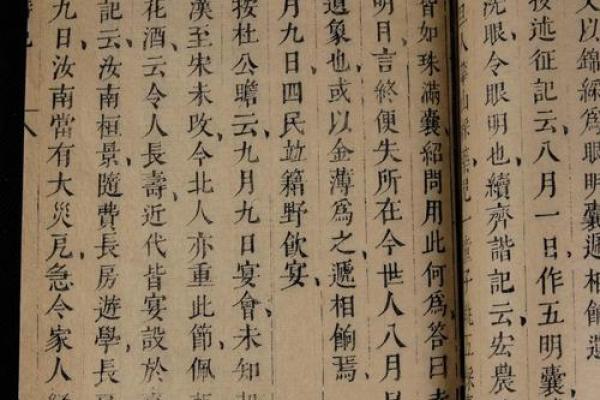 以錦綵爲眼明囊遞相餉遺
按述征記云、八月一日、作五明囊、
洗眼、令眼明也、續齊諧記云、宏農
人華山採藥見一童子執五綵
皆如珠滿囊、紹問用此何爲、答曰
明目、言終便失所在、今世人八月
遺象也、或以金薄爲之、遞相餉焉、
月九日、四民竝籍野飲宴、
按杜公瞻云、九月九日宴會、未知
漢至宋未改、今北人亦重此節、佩
花酒、云令人長壽、近代皆宴設於
記云、汝南桓景、隨費長房遊學、長
九日、汝南當有大災厄、急令家人